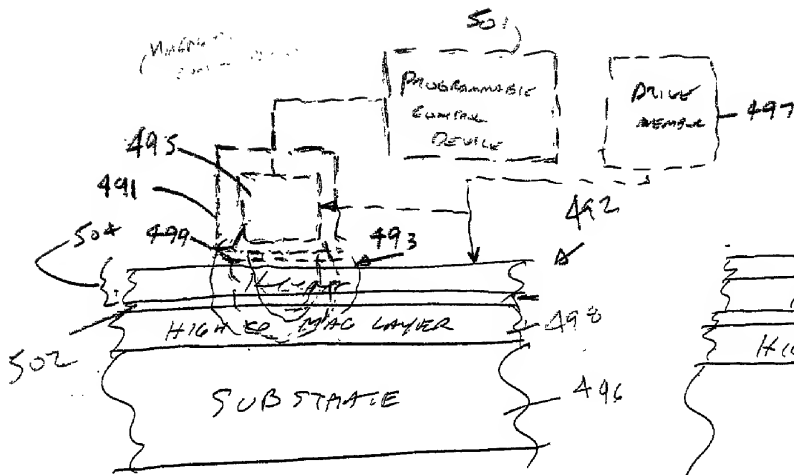 501
PROGRAMMABLE
CONTROL
DEVICE
DRIVE
MEMBER
497
495
491
504
499
493
492
502
HIGH CO MAG LAYER
498
SUBSTRATE
496